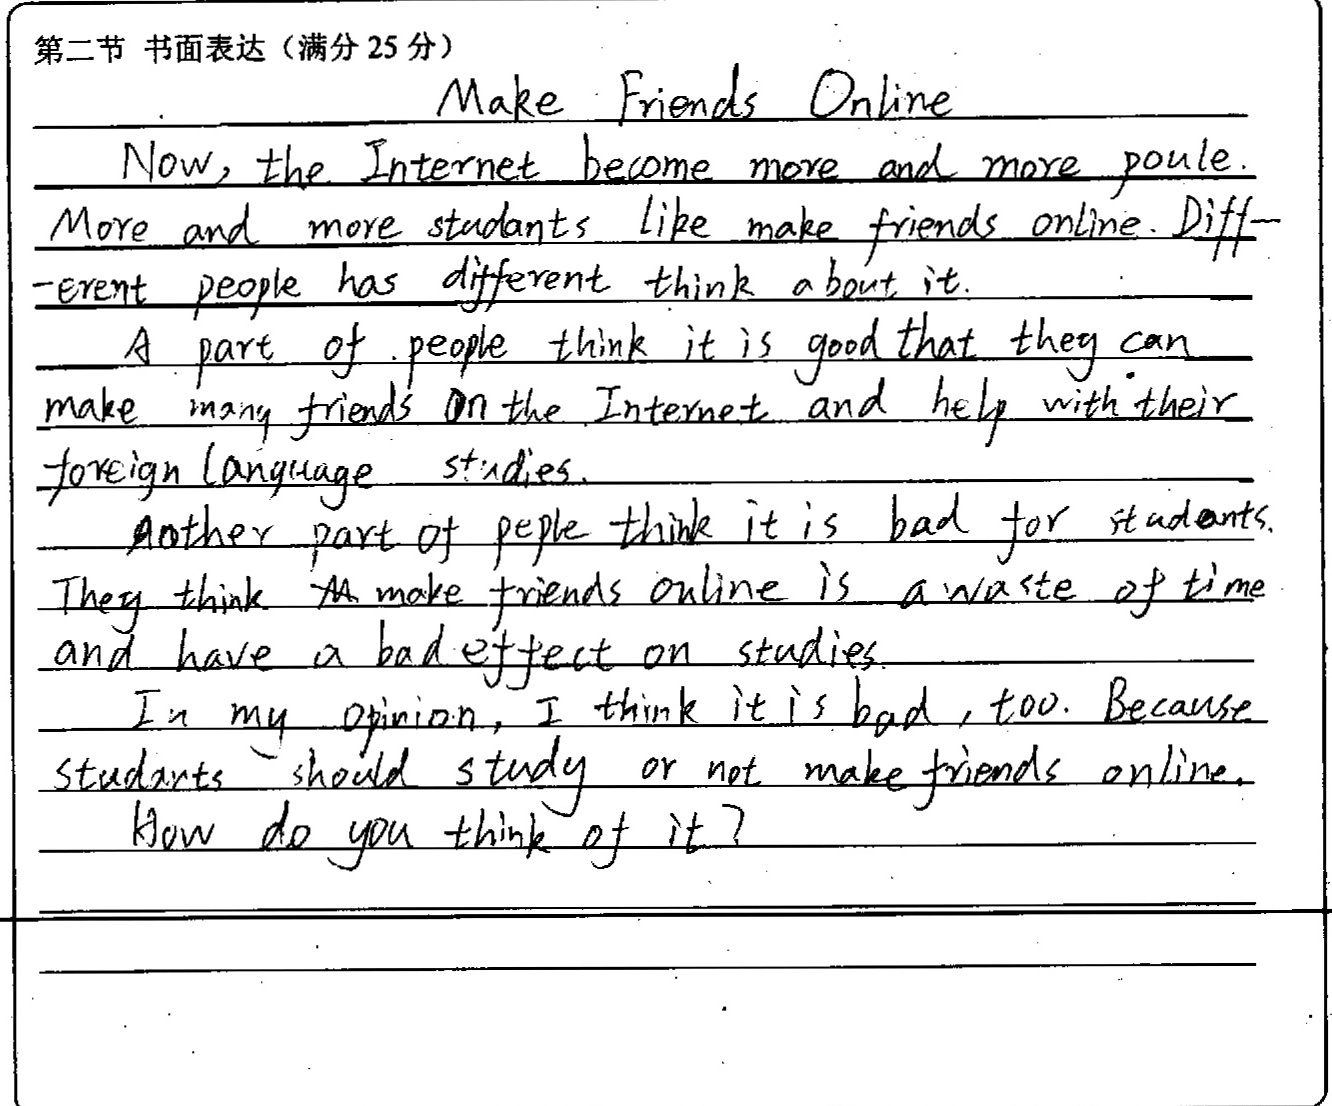 第二节 书面表达（满分 25 分）
Make Friends Online
Now, the Internet become more and more poule.
More and more studants like make friends online. Diff-
-erent people has different think about it.
A part of people think it is good that they can
make many friends on the Internet and help with their
foreign language studies.
Another part of peple think it is bad for studants.
They think make friends online is a waste of time
and have a bad effect on studies.
In my opinion, I think it is bad, too. Because
studants should study or not make friends online.
How do you think of it?